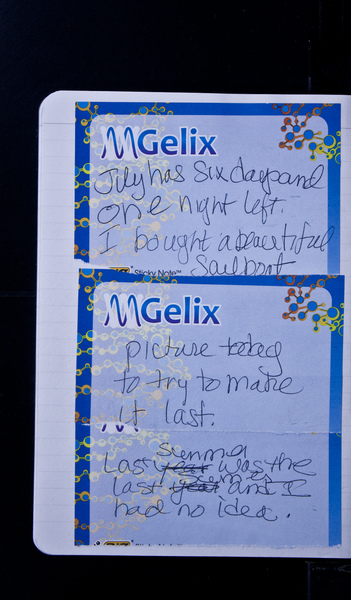 MGelix
July has six days and
one night left.
I bought a beautiful
sailboat
Sticky Note™
MGelix
picture today
to try to make
it last.
Summer
Last year was the
last year and I
had no idea.